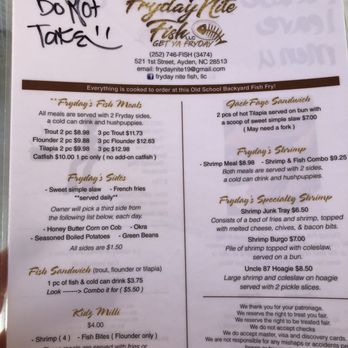 Do Not
Take!!
Fryday Nite
Fish LLC
GET YA FRYDAY
(252) 746-FISH (3474)
521 1st Street, Ayden, NC 28513
email: frydaynite19@gmail.com
fryday nite fish, llc
Everything is cooked to order at this Old School Backyard Fish Fry!
**Fryday's Fish Meals
All meals are served with 2 Fryday sides,
a cold can drink and hushpuppies.
Trout 2 pc $8.98 3 pc Trout $11.73
Flounder 2 pc $9.88 3 pc Flounder $12.63
Tilapia 2 pc $9.98 3 pc $12.98
Catfish $10.00 1 pc only ( no add-on catfish )
Fryday's Sides
- Sweet simple slaw - French fries
**served daily**
Owner will pick a third side from
the following list below, each day.
- Honey Butter Corn on Cob - Okra
- Seasoned Boiled Potatoes - Green Beans
All sides are $1.50
Fish Sandwich (trout, flounder or tilapia)
1 pc of fish & cold can drink $3.75
Look -----> Combo it for ( $5.50 )
Kidz Milli
$4.00
- Shrimp ( 4 ) - Fish Bites ( Flounder only )
Jack-Faye Sandwich
2 pcs of hot Tilapia served on bun with
a scoop of sweet simple slaw $7.00
( May need a fork )
Fryday's Shrimp
- Shrimp Meal $8.98 - Shrimp & Fish Combo $9.25
Both meals are served with 2 sides.
a cold can drink and hushpuppies.
Fryday's Specialty Shrimp
Shrimp Junk Tray $6.50
Consists of a bed of fries and shrimp, topped
with melted cheese, chives, & bacon bits.
Shrimp Burgo $7.00
Pile of shrimp topped with coleslaw,
served on a bun.
Uncle 87 Hoagie $8.50
Large shrimp and coleslaw on hoagie
served with 2 pickle slices.
We thank you for your patronage.
We reserve the right to treat you fair.
We reserve the right to be treated fair.
We do not accept checks
We do accept master, visa and discovery cards.
We are not responsible for any mishaps or accidents